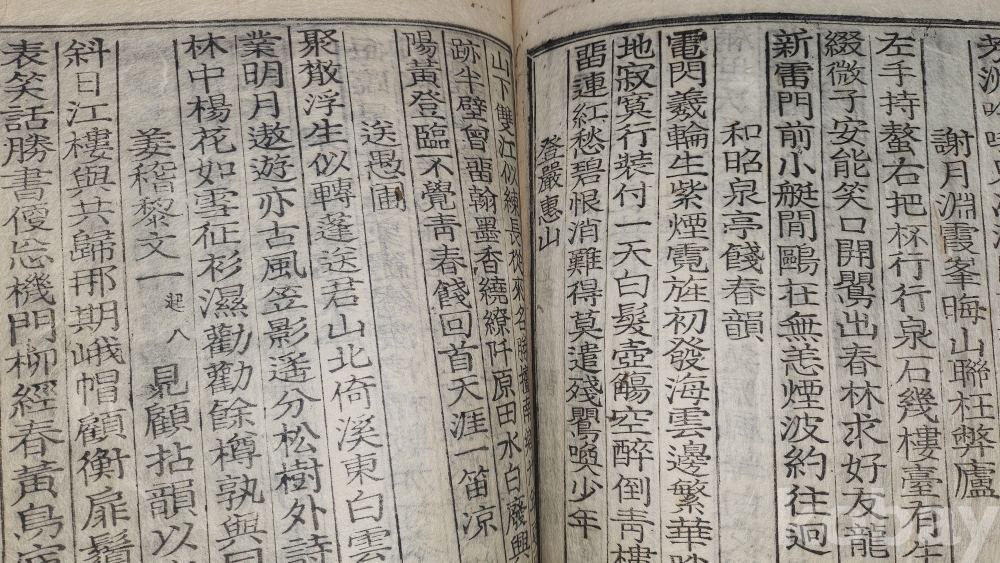 謝月淵霞峯晦山聯枉弊廬
左手持螯右把杯行行泉石幾樓臺有生
綴微子安能笑口開鸎出春林求好友龍
新雷門前小艇閒鷗在無恙煙波約往迥
和昭泉亭餞春韻
電閃羲輪生紫煙霓旌初發海雲邊繁華
地寂寞行裝付一天白髮壺觴空醉倒靑樓
畱連紅愁碧恨消難得莫遣殘鸎喚少年
登嚴惠山
山下雙江似練長從來名勝擅南
跡半壁曾畱翰墨香繞繚阡原田水白廢興
陽黃登臨不覺靑春餞回首天涯一笛凉
送愚圃
聚散浮生似轉蓬送君山北倚溪東白雲
業明月遨遊亦古風笠影遙分松樹外詩
林中楊花如雪征衫濕勸勸餘樽孰與
姜稽黎文一起八見顧拈韻以
斜日江樓與共歸那期峨帽顧衡扉鬚
表笑話勝書傻忘機門柳經春黃鳥